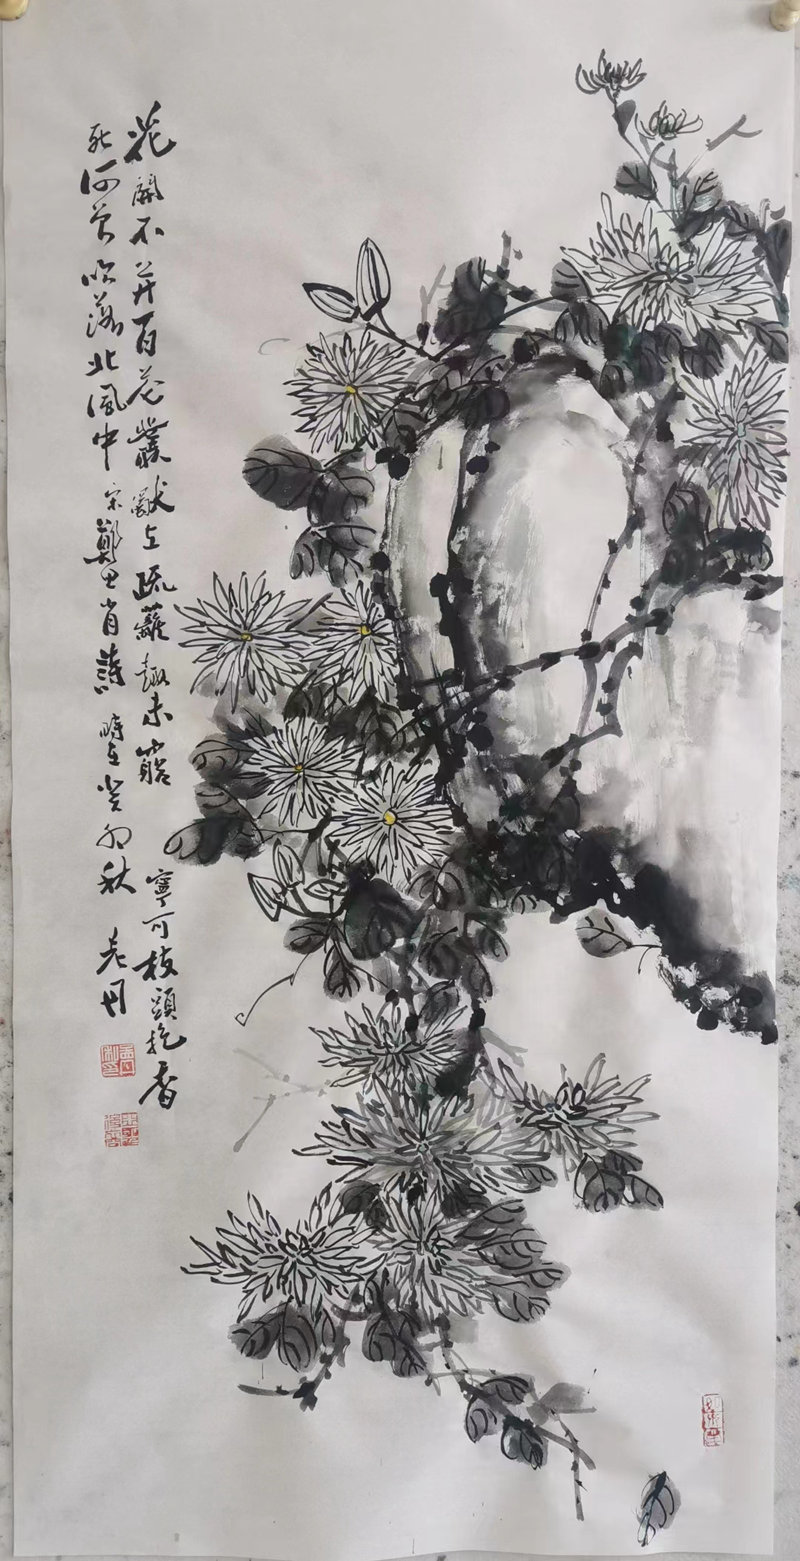 花開不并百花叢獨立疏籬趣未窮寧可枝頭抱香
死何曾吹落北風中宋鄭思肖詩時在癸卯秋老丹